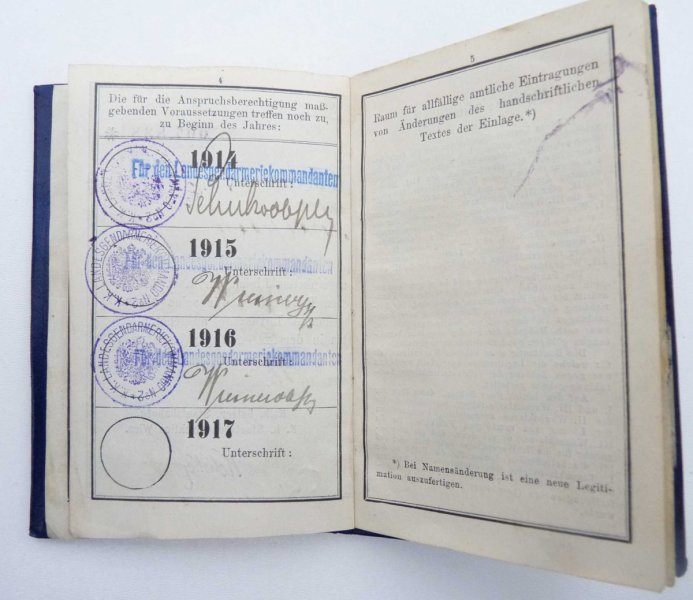 4
Die für die Anspruchsberechtigung maß-
gebenden Voraussetzungen treffen noch zu,
zu Beginn des Jahres:
1914
Für den Landesgendarmeriekommandanten
Unterschrift:
1915
Für den Landesgendarmeriekommandanten
Unterschrift:
K.K. LANDESGENDARMERIEKOMMANDO No 2
1916
Für den Landesgendarmeriekommandanten
Unterschrift:
K.K. LANDESGENDARMERIEKOMMANDO No 2
1917
Unterschrift:
5
Raum für allfällige amtliche Eintragungen
von Änderungen des handschriftlichen
Textes der Einlage.*)
*) Bei Namensänderung ist eine neue Legiti-
mation auszufertigen.